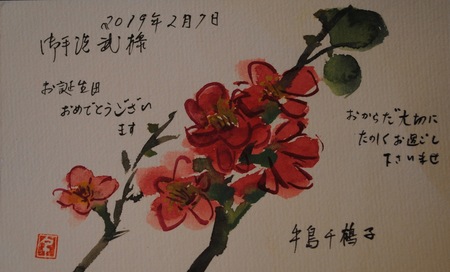 2019年2月7日
御手洗 武 様
お誕生日
おめでとうござい
ます
おからだ大切に
たのしくお過ごし
下さいませ
牛島千鶴子